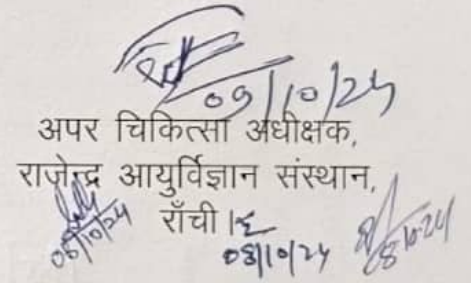 09/10/24
अपर चिकित्सा अधीक्षक,
राजेन्द्र आयुर्विज्ञान संस्थान,
राँची।
08/10/24
08/10/24
8.10.24